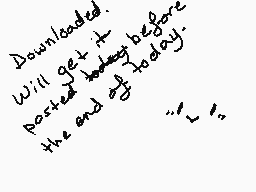 Downloaded.
Will get it
posted today before
the end of today.